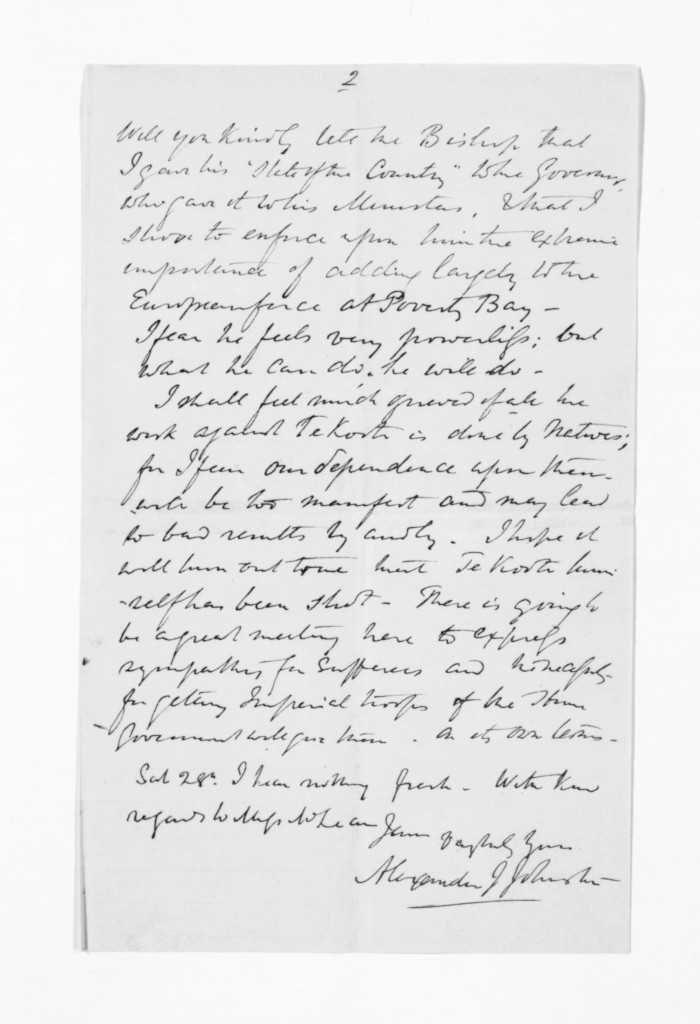 2
Will you kindly tell the Bishop that
I gave his "State of the Country" to the Governor,
who gave it to his Ministers, & that I
strove to enforce upon him the extreme
importance of adding largely to the
European force at Poverty Bay -
I fear he feels very powerless; but
what he can do, he will do -
I shall feel much grieved if all the
work against Te Kooti is done by Natives;
for I fear our dependence upon them
will be too manifest and may lead
to bad results by and by. I hope it
will turn out true that Te Kooti him
-self has been shot - There is going to
be a great meeting here to express
sympathy for Sufferers and
for getting Imperial troops if the Home
Government will give them - on its own terms -
Sat 28th. I hear nothing fresh - With kind
regards to Miss McLean
I am faithfully yours
Alexander J Johnston